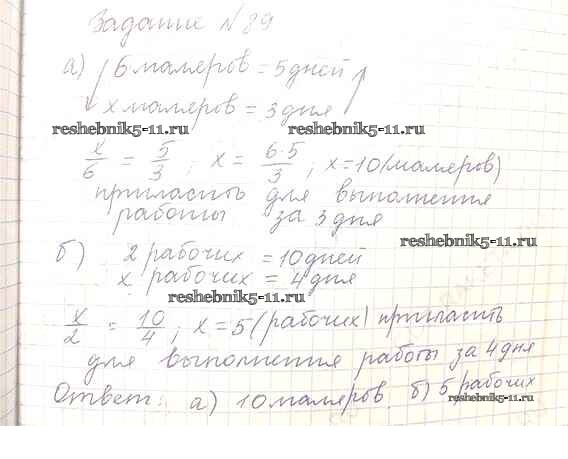 Задание №89
а) 6 маляров = 5 дней
х маляров = 3 дня
reshebnik5-11.ru reshebnik5-11.ru
х/6 = 5/3 ; х = 6·5/3 ; х = 10 (маляров)
пригласить для выполнения
работы за 3 дня
reshebnik5-11.ru
б) 2 рабочих = 10 дней
х рабочих = 4 дня
reshebnik5-11.ru
х/2 = 10/4 ; х = 5 (рабочих) пригласить
для выполнения работы за 4 дня
Ответ: а) 10 маляров б) 5 рабочих
reshebnik5-11.ru